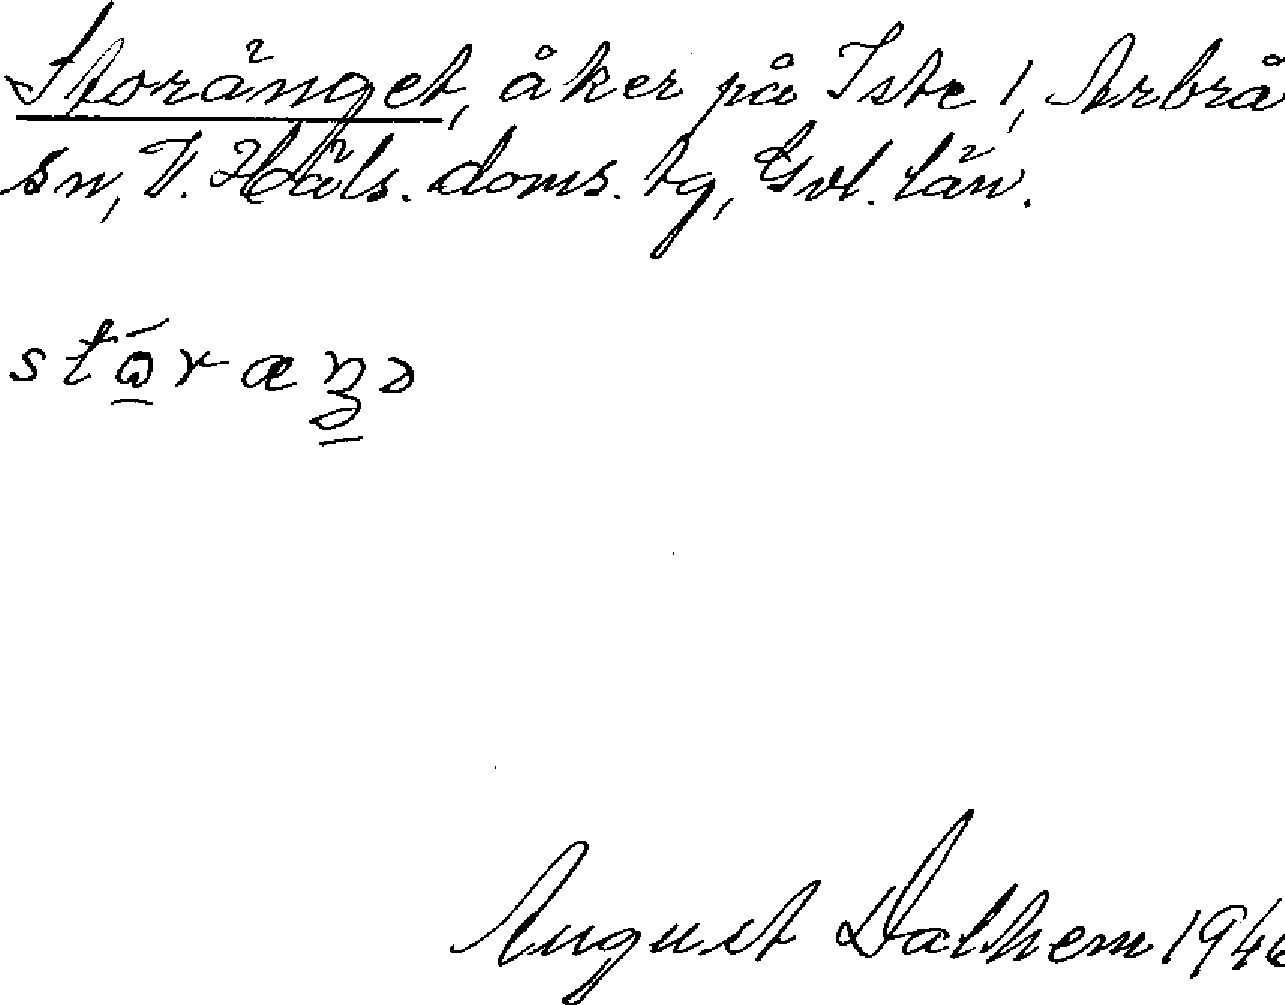 Storänget, åker på Iste 1, Arbrå
sn, V. Häls. doms. tg, Gvl. län.
August Dalhem